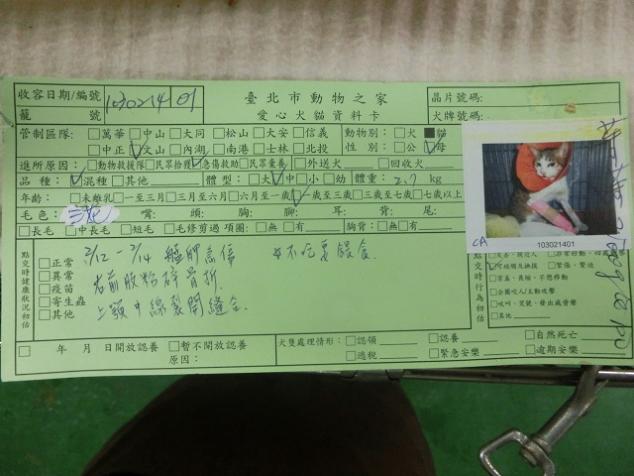 收容日期/編號 1030214 01 臺北市動物之家 晶片號碼:
籠 號 愛心犬貓資料卡 犬牌號碼:
管制區隊: □萬華 □中山 □大同 □松山 □大安 □信義 動物別: □犬 ■貓
□中正 □文山 □內湖 □南港 □士林 □北投 性 別: □公 □母
進所原因: □動物救援隊 □民眾拾獲 □急傷救助 □民眾棄養 □外送犬 □回收犬
品 種: □混種 □其他 體 型: □大 □中 □小 □幼 體重: 2.7 kg
年齡: □未離乳 □一至三月 □三月至六月 □六月至一歲 □一歲至三歲 □三歲至七歲 □七歲以上
毛色: 三花 背: 頭: 胸: 腳: 耳: 背: 尾:
□長毛 □中長毛 □短毛 □毛修剪過 項圈: □無 □有 胸背: □無 □有
點交時健康狀況初估
□正常
□異常
□疫苗
□寄生蟲
□其他
2/12-2/14
不吃要餵食
右前肢粉碎骨折
上顎中線裂開縫合
CA 103021401
點交時行為初估
□其他
□年 月 日開放認養 □暫不開放認養
原因:
犬隻處理情形: □認領 □自然死亡
□逃脫 □緊急安樂 □逾期安樂